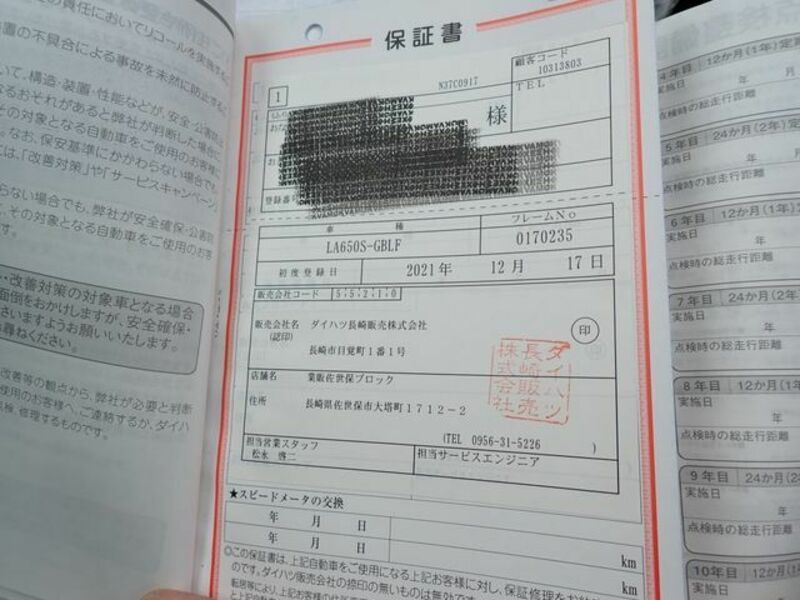 の責任においてリコールを実施する
装置の不具合による事故を未然に防止する
いて、構造・装置・性能などが、安全・公害防止
なるおそれがあると弊社が判断した場合に
その対象となる自動車をご使用のお客様に
。なお、保安基準にかかわらない場合でも、
には、「改善対策」や「サービスキャンペーン」
らない場合でも、弊社が安全確保・公害防
、その対象となる自動車をご使用のお客
・改善対策の対象車となる場合
面倒をおかけしますが、安全確保・
さいますようお願いいたします。
尋ねください。
改善等の観点から、弊社が必要と判断
使用のお客様へ、ご連絡するか、ダイハ
点検、修理するものです。
保証書
1
N37C0917
顧客コード
10313803
TEL
様
登録番号
車種
フレームNo
LA650S-GBLF
0170235
初度登録日
2021年 12月 17日
販売会社コード 55210
販売会社名 ダイハツ長崎販売株式会社
(認印)
長崎市目覚町1番1号
印
店舗名 業販佐世保ブロック
住所 長崎県佐世保市大塔町1712-2
(TEL 0956-31-5226 )
ダイハツ
長崎販売
株式会社
担当営業スタッフ
松永 啓二
担当サービスエンジニア
★スピードメータの交換
年 月 日
km
年 月 日
km
◎この保証書は、上記自動車をご使用になる上記お客様に対し、保証修理をお約
のです。ダイハツ販売会社の捺印の無いものは無効です。
点検整備
4年目 12か月(1年)定期
実施日
年 月
点検時の総走行距離
5年目 24か月(2年)定
実施日
年
点検時の総走行距離
6年目 12か月(1年)
実施日
年
点検時の総走行距離
7年目 24か月(2年
実施日
点検時の総走行距離
8年目 12か月(1年
実施日
年
点検時の総走行距離
9年目 24か月(2
実施日
年
点検時の総走行距離
10年目 12か月(
実施日